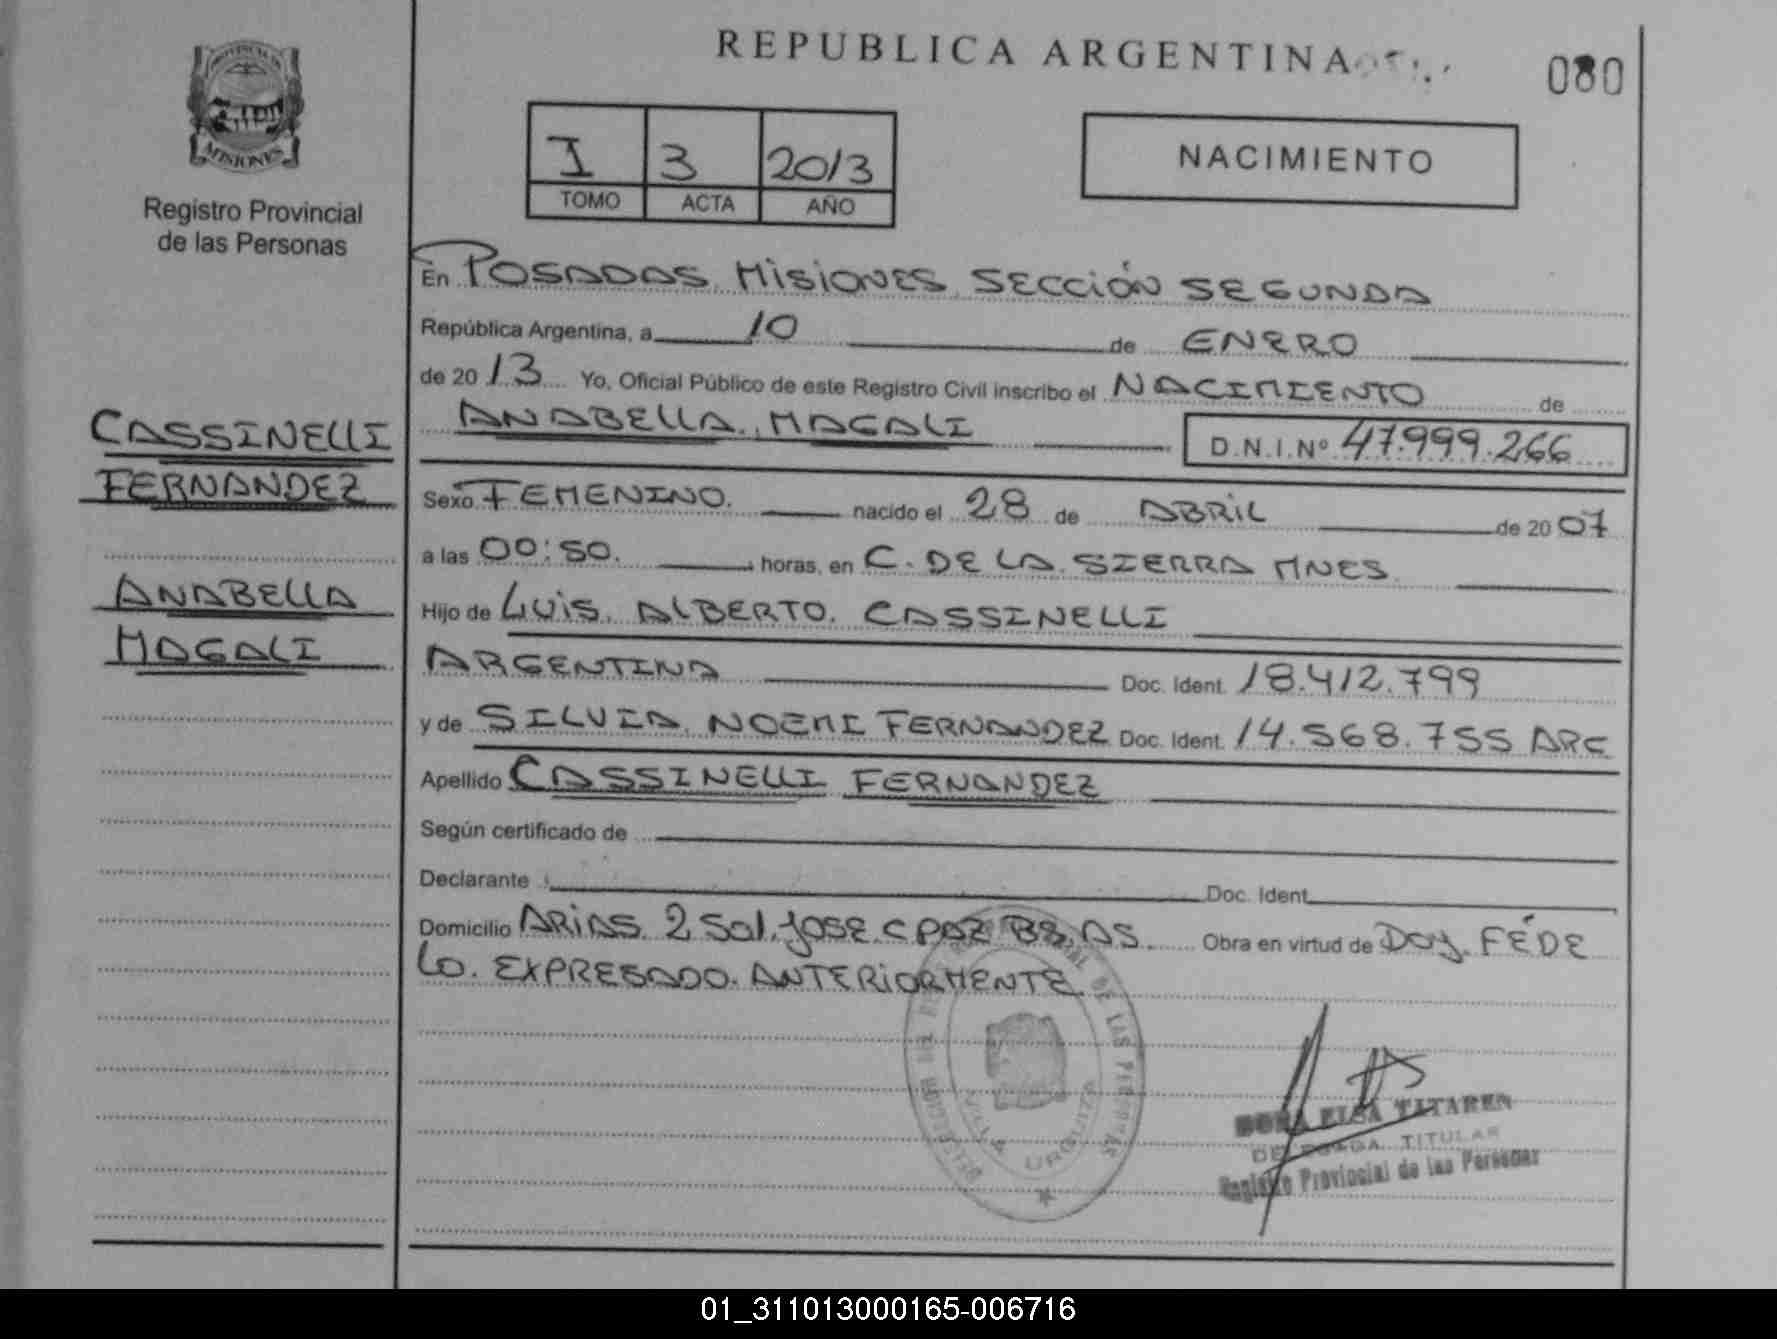 REPUBLICA ARGENTINA
080
PROVINCIA DE
MISIONES
Registro Provincial
de las Personas
I 3 2013
TOMO ACTA AÑO
NACIMIENTO
En POSADAS, MISIONES, SECCIÓN SEGUNDA
República Argentina, a 10 de ENERO
de 2013 Yo, Oficial Público de este Registro Civil inscribo el NACIMIENTO de
ANABELLA, MAGALI D.N.I.Nº 47.999.266
CASSINELLI
FERNANDEZ
ANABELLA
MAGALI
Sexo FEMENINO. nacido el 28 de ABRIL de 2007
a las 00:50. horas, en C. DE LA SIERRA MNES
Hijo de LUIS, ALBERTO. CASSINELLI
ARGENTINA Doc. Ident. 18.412.799
y de SILVIA, NOEMI FERNANDEZ Doc. Ident. 14.568.755 ARG
Apellido CASSINELLI FERNANDEZ
Según certificado de
Declarante Doc. Ident.
Domicilio ARIAS. 2501. JOSE. C PAZ BS. AS. Obra en virtud de Doy. FÉ DE
LO. EXPRESADO. ANTERIORMENTE
DE LAS PERSONAS
VILLA URQUIZA
ELSA
TITULAR
Registro Provincial de las Personas
01_311013000165-006716